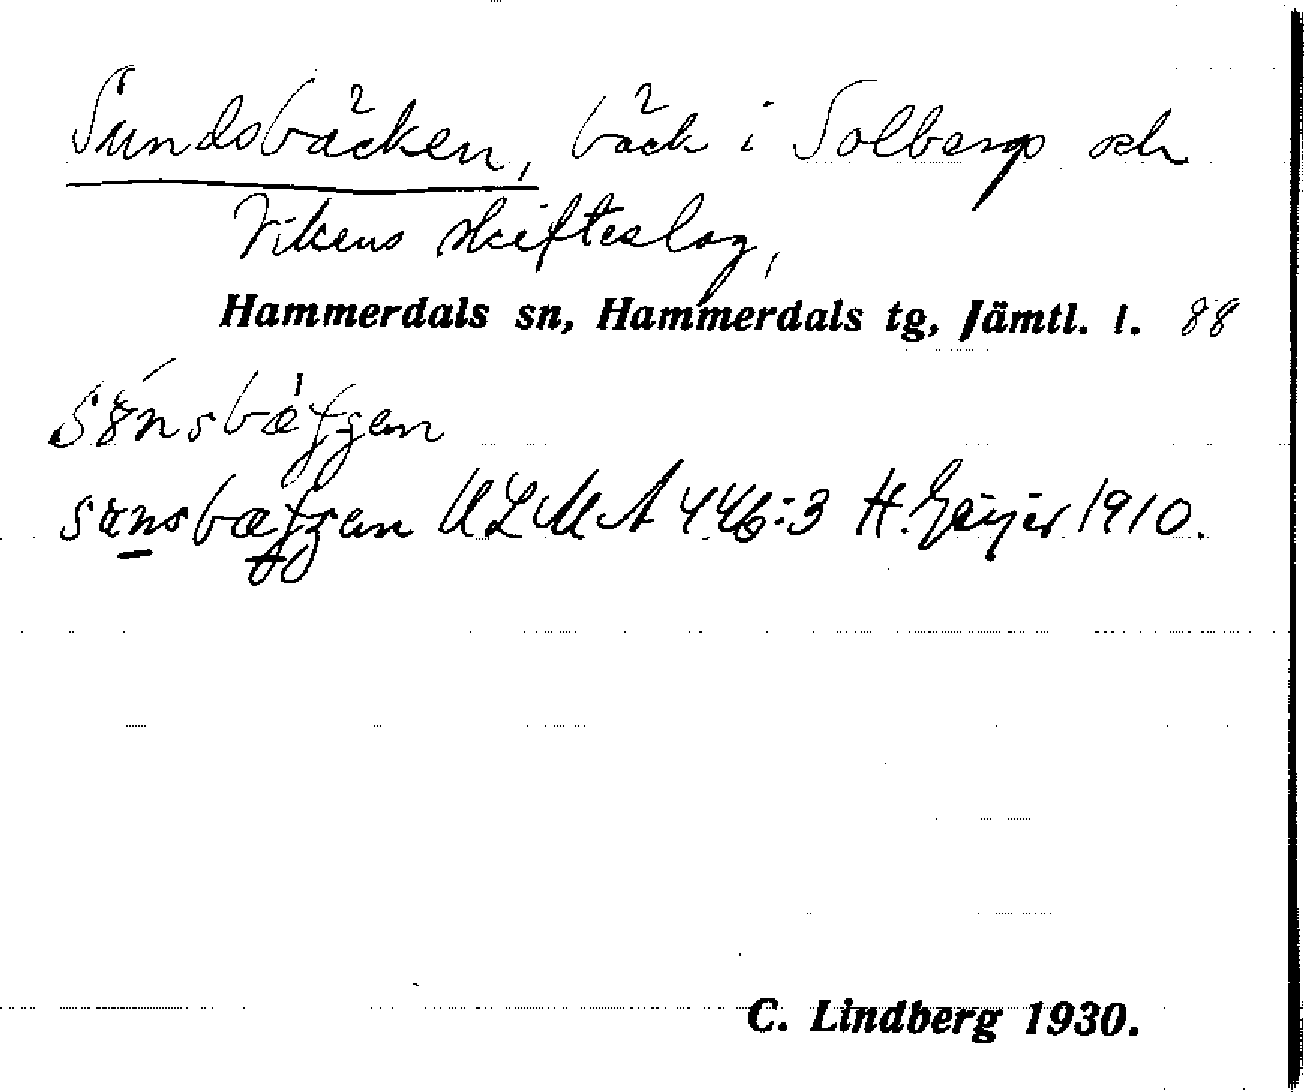 Sundsbäcken, bäck i Solbergs och
Vikens skifteslag,
Hammerdals sn, Hammerdals tg, Jämtl. l. 88
ULMA 446:3 H. Geijer 1910.
C. Lindberg 1930.